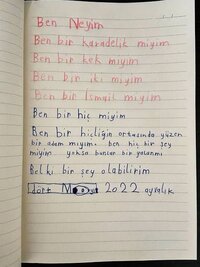 Ben Neyim
Ben bir karadelik miyim
Ben bir kek miyim
Ben bir iki miyim
Ben bir Ismail miyim
Ben bir hiç miyim
Ben bir hiçliğin ortasında yüzen
bir adam mıyım. ben hiç bir şey
miyim yoksa bunlar bir yalanmı
Belki bir şey olabilirim
dört 2022 aralık